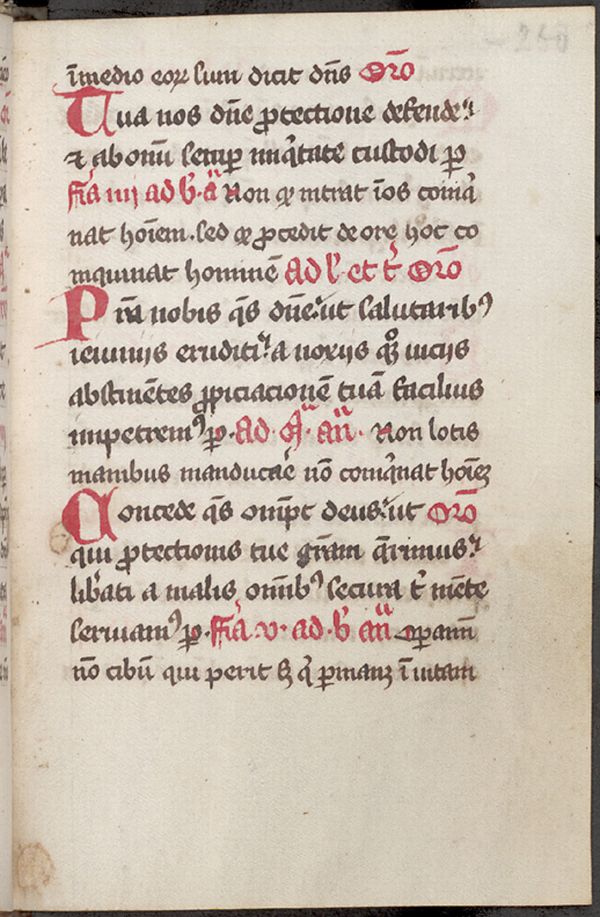 250
ī medio eoꝝ sum dicit dn̄s Or̄o
Tua nos dn̄e ꝓtectione defende
⁊ ab om̄i semꝑ iniq̄tate custodi ꝑ
Fr̄ia iiij ad b̄. a᷒ Non qͦ intrat ī os coinq̄
nat hoīem. sed qͦ ꝓcedit de ore hoc co
inquinat hominē ad l̓ et t̓ Or̄o
Pr̄a nobis qs̄ dn̄e ut salutaribꝰ
ieiuniis eruditi a noxiis qͦꝫ viciis
abstinētes ꝓpiciacionē tuā facilius
impetremꝰ ꝑ. ad. an̄. Non lotis
manibus manducar̄e nō coinq̄nat hoīeꝫ
Concede qs̄ om̄pt̄ deus ut Or̄o
qui ꝓtectionis tue gr̄am q̄rimus
lib̓ati a malis om̄ibꝰ secura t̓ mēte
seruiamꝰ ꝑ. Fr̄ia. v. ad. b̄ an̄ Oꝑamī
nō cibū qui perit sꝫ q̄ ꝑmanꝫ ī vitam